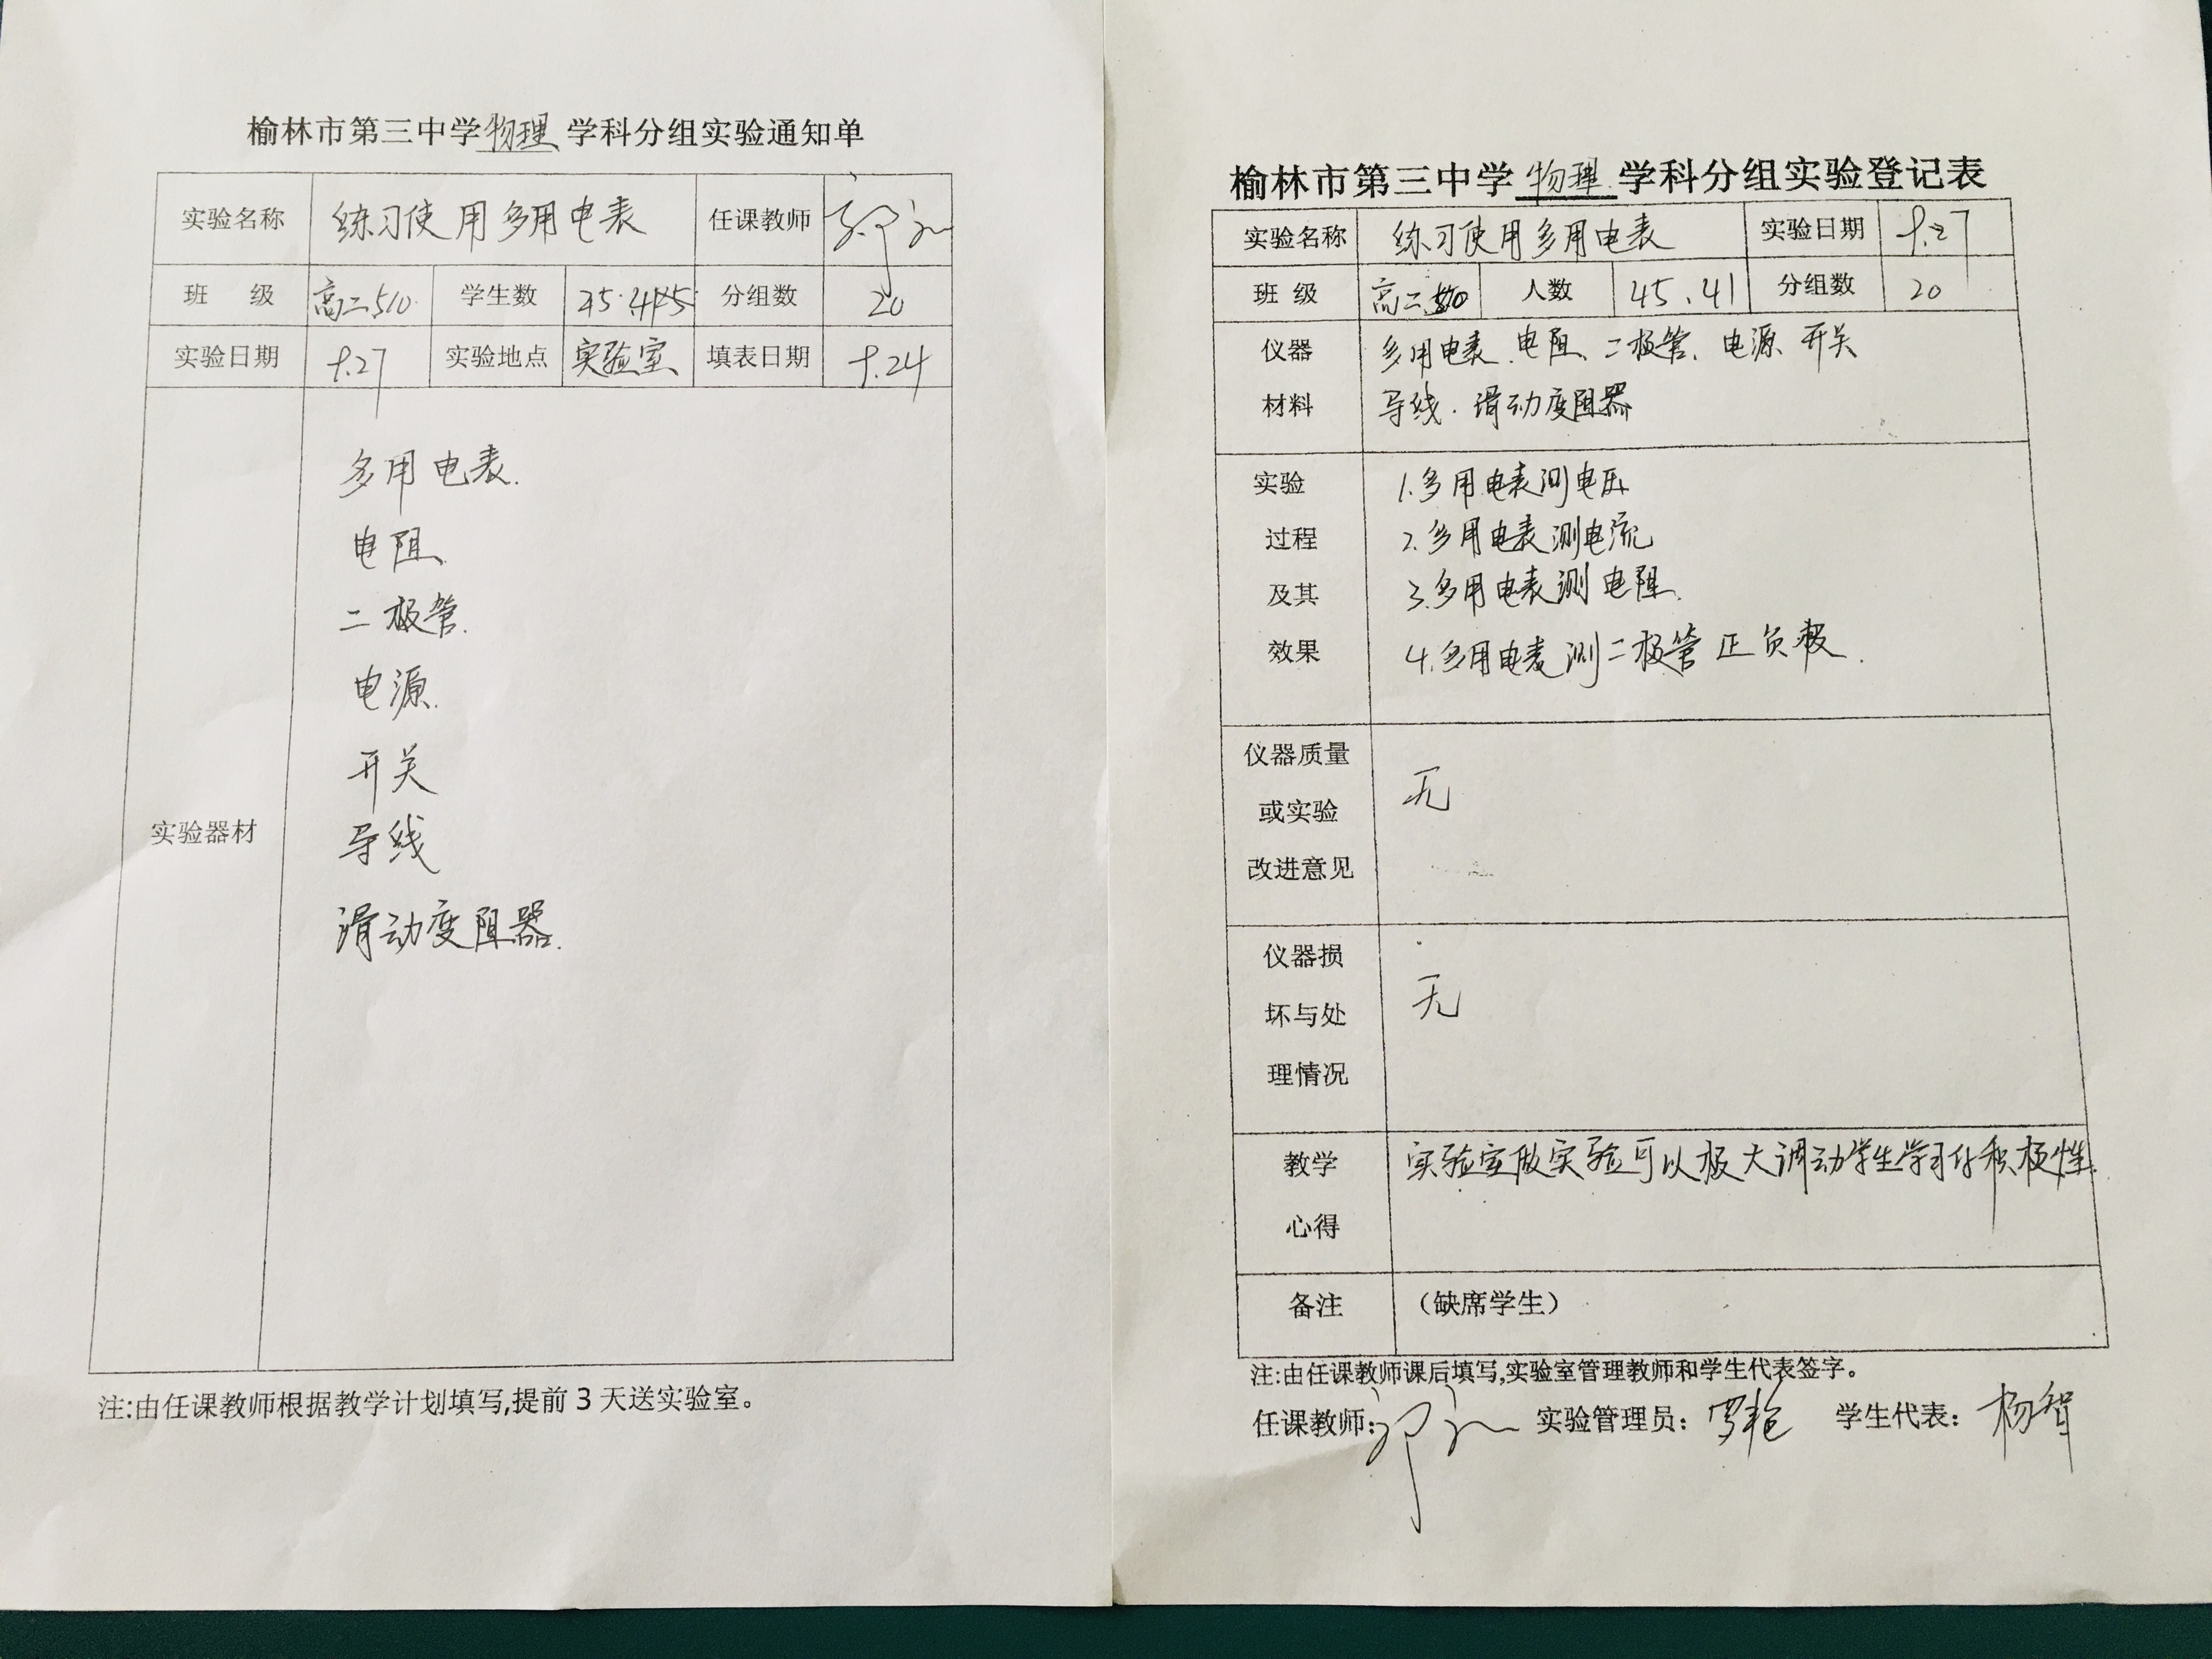 榆林市第三中学物理学科分组实验通知单
实验名称 练习使用多用电表 任课教师
班 级 高二5.10 学生数 分组数 20
实验日期 9.27 实验地点 实验室 填表日期 9.24
实验器材
多用电表.
电阻
二极管.
电源.
开关
导线
滑动变阻器.
注:由任课教师根据教学计划填写,提前3天送实验室。
榆林市第三中学物理学科分组实验登记表
实验名称 练习使用多用电表 实验日期 9.27
班 级 高二 人数 45.41 分组数 20
仪器 多用电表、电阻、二极管、电源 开关
材料 导线.滑动变阻器
实验 1.多用电表测电压
过程 2.多用电表测电流
及其 3.多用电表测电阻.
效果 4.多用电表测二极管正负极.
仪器质量
或实验 无
改进意见
仪器损
坏与处 无
理情况
教学 实验室做实验可以极大调动学生学习的积极性.
心得
备注 (缺席学生)
注:由任课教师课后填写,实验室管理教师和学生代表签字。
任课教师: 实验管理员: 学生代表: 杨智